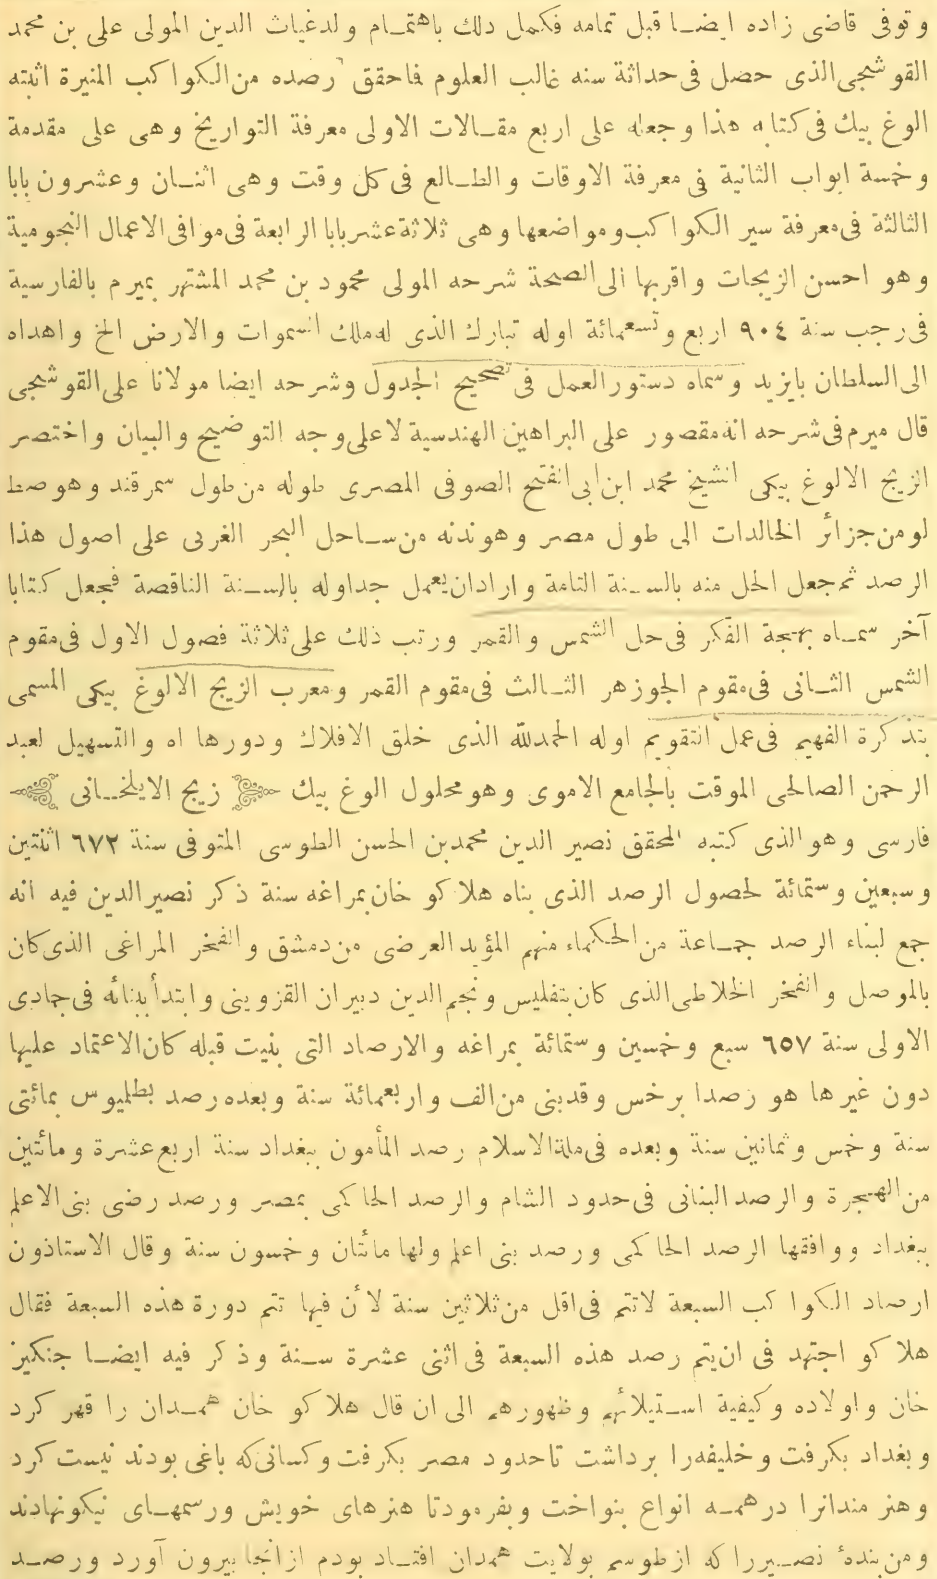 وتوفى قاضى زاده ايضا قبل تمامه فكمل ذلك باهتمام ولدغياث الدين المولى على بن محمد
القوشجى الذى حصل فى حداثة سنه غالب العلوم فاحقق رصده من الكواكب المنيرة اثبته
الوغ بيك فى كتابه هذا وجعله على اربع مقالات الاولى معرفة التواريخ وهى على مقدمة
وخمسة ابواب الثانية فى معرفة الاوقات والطالع فى كل وقت وهى اثنان وعشرون بابا
الثالثة فى معرفة سير الكواكب ومواضعها وهى ثلاثة عشر بابا الرابعة فى موافى الاعمال النجومية
وهو احسن الزيجات واقربها الى الصحة شرحه المولى محمود بن محمد المشتهر بميرم بالفارسية
فى رجب سنة ٩٠٤ اربع وتسعمائة اوله تبارك الذى له ملك السموات والارض الخ واهداه
الى السلطان بايزيد وسماه دستور العمل فى تصحيح الجدول وشرحه ايضا مولانا على القوشجى
قال ميرم فى شرحه انه مقصور على البراهين الهندسية لا على وجه التوضيح والبيان واختصر
الزيج الالوغ بيكى الشيخ محمد ابن ابى الفتح الصوفى المصرى طوله من طول سمرقند وهو صط
لو من جزائر الخالدات الى طول مصر وهو ندنه من ساحل البحر الغربى على اصول هذا
الرصد ثم جعل الحل منه بالسنة التامة واراد ان يعمل جداوله بالسنة الناقصة فجعل كتابا
آخر سماه بهجة الفكر فى حل الشمس والقمر ورتب ذلك على ثلاثة فصول الاول فى مقوم
الشمس الثانى فى مقوم الجوزهر الثالث فى مقوم القمر ومعرب الزيج الالوغ بيكى المسمى
بتذكرة الفهيم فى عمل التقويم اوله الحمدلله الذى خلق الافلاك ودورها اه والتسهيل لعبد
الرحمن الصالحى الموقت بالجامع الاموى وهو محلول الوغ بيك ﴿ زيج الايلخانى ﴾
فارسى وهو الذى كتبه المحقق نصير الدين محمد بن الحسن الطوسى المتوفى سنة ٦٧٢ اثنتين
وسبعين وستمائة لحصول الرصد الذى بناه هلاكو خان بمراغه سنة ذكر نصير الدين فيه انه
جمع لبناء الرصد جماعة من الحكماء منهم المؤيد العرضى من دمشق والفخر المراغى الذى كان
بالموصل والفخر الخلاطى الذى كان بتفليس ونجم الدين دبيران القزوينى وابتدأ بنائه فى جمادى
الاولى سنة ٦٥٧ سبع وخمسين وستمائة بمراغه والارصاد التى بنيت قبله كان الاعتماد عليها
دون غيرها هو رصدا برخس وقدبنى من الف واربعمائة سنة وبعده رصد بطلميوس بمائتى
سنة وخمس وثمانين سنة وبعده فى ملة الاسلام رصد المأمون ببغداد سنة اربع عشرة ومائتين
من الهجرة والرصد البنانى فى حدود الشام والرصد الحاكمى بمصر ورصد رضى بنى الاعلم
ببغداد ووافقها الرصد الحاكمى ورصد بنى اعلم ولها مائتان وخمسون سنة وقال الاستاذون
ارصاد الكواكب السبعة لاتتم فى اقل من ثلاثين سنة لأن فيها تتم دورة هذه السبعة فقال
هلاكو اجتهد فى ان يتم رصد هذه السبعة فى اثنى عشرة سنة وذكر فيه ايضا جنكيز
خان واولاده وكيفية استيلائهم وظهورهم الى ان قال هلاكو خان همدان را قهر كرد
وبغداد بكرفت وخليفه را برداشت تاحدود مصر بكرفت وكسانى كه باغى بودند نيست كرد
وهنر مندانرا در همه انواع بنواخت وبفرمودتا هنرهاى خويش ورسمهاى نيكونهادند
ومن بندهٔ نصيررا كه از طوسم بولايت همدان افتاد بودم ازانجا بيرون آورد ورصد